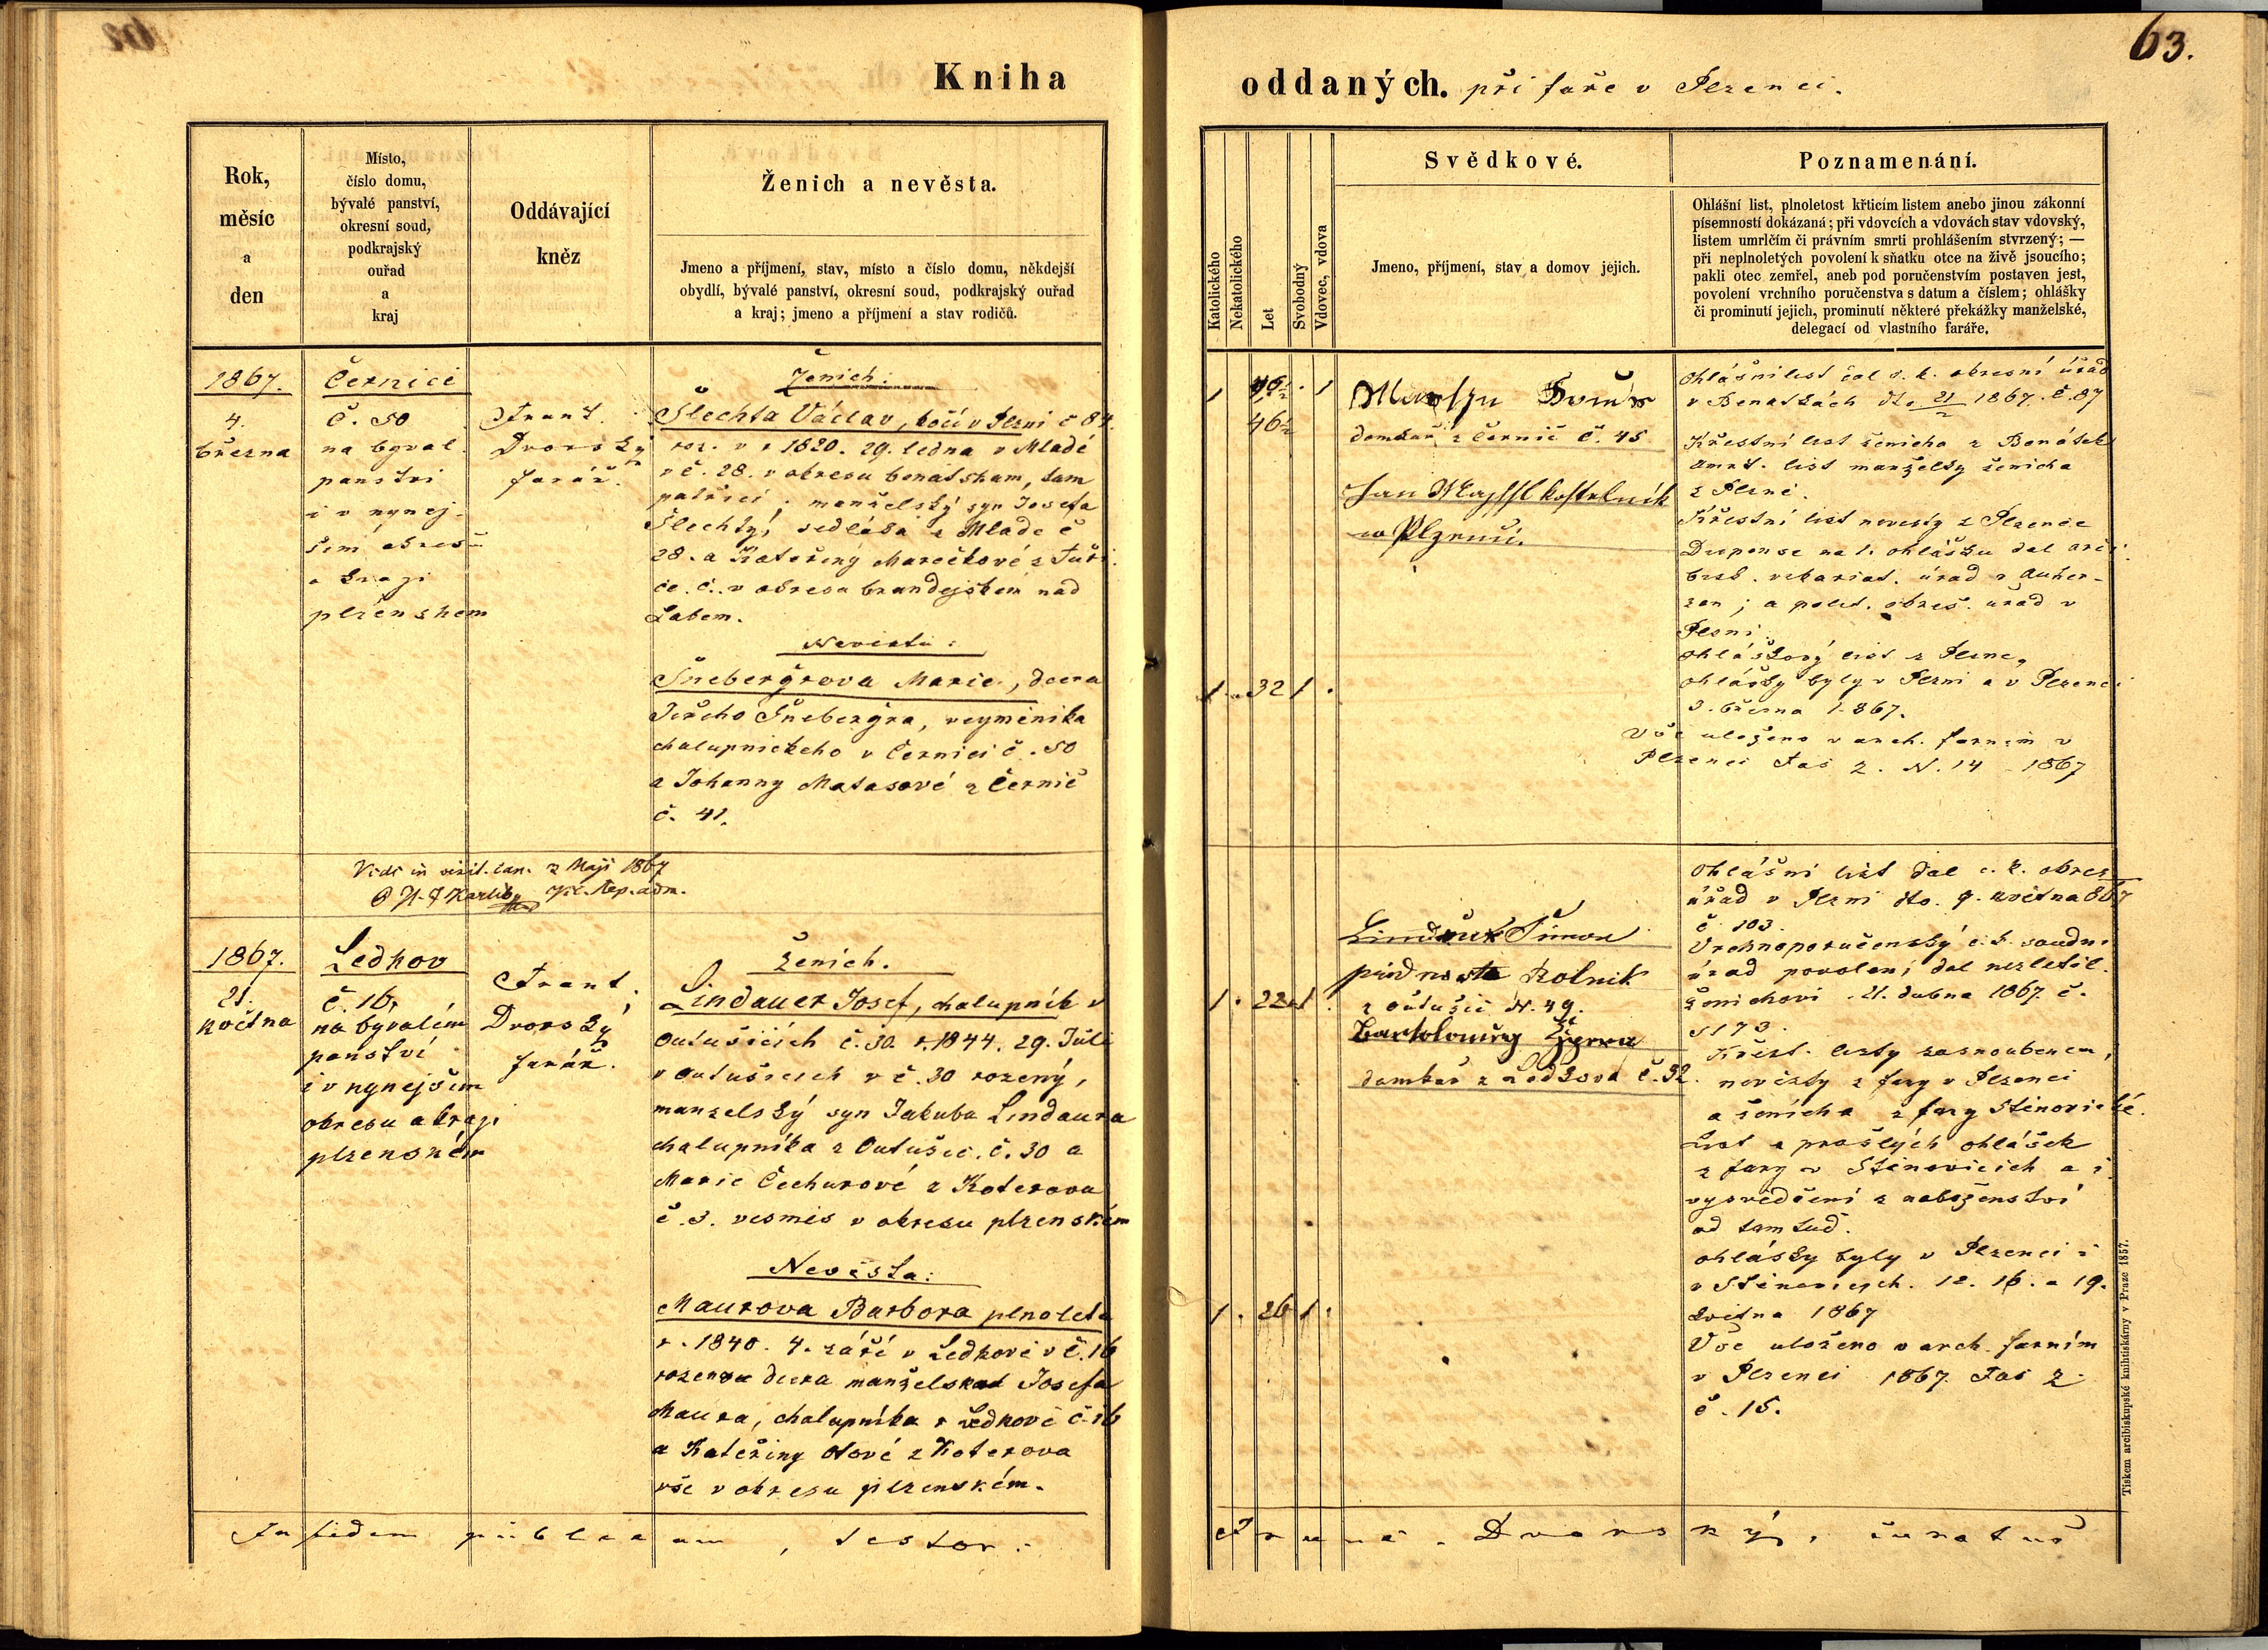 63.
Kniha oddaných. při faře v Plzenci.
Rok,
měsíc
a
den
Místo,
číslo domu,
bývalé panství,
okresní soud,
podkrajský
ouřad
a
kraj
Oddávající
kněz
Ženich a nevěsta.
Jmeno a příjmení, stav, místo a číslo domu, někdejší
obydlí, bývalé panství, okresní soud, podkrajský ouřad
a kraj; jmeno a příjmení a stav rodičů.
Katolického
Nekatolického
Let
Svobodný
Vdovec, vdova
Svědkové.
Jmeno, příjmení, stav a domov jejich.
Poznamenání.
Ohlášní list, plnoletost křticím listem anebo jinou zákonní
písemností dokázaná; při vdovcích a vdovách stav vdovský,
listem umrlčím či právním smrti prohlášením stvrzený; —
při neplnoletých povolení k sňatku otce na živě jsoucího;
pakli otec zemřel, aneb pod poručenstvím postaven jest,
povolení vrchního poručenstva s datum a číslem; ohlášky
či prominutí jejich, prominutí některé překážky manželské,
delegací od vlastního faráře.
1867.
4.
března
Černici
č. 50
na byval.
panstvi
i v nynej-
šim okresu
a kraji
plzenskem
Frant.
Dvorský
farář.
Ženich:
Šlechta Václav, kočí v Plzni č 84.
roz. v r 1820. 29. ledna v Mladé
v č. 28. v okresu benatskam, tam
patřící; manželský syn Josefa
Šlechty, sedláka z Mlade č
28. a Kateřiny Marečkové z Tuři-
ce. č.. v okresu brandejském nad
Labem.
Nevěsta:
Šnebergrova Marie, dcera
Jiřeho Šnebergra, vejmenika
chalupnickeho v Černici č. 50
a Johanny Matasové z Černic
č. 41.
1 . 1
46½
domkař z Černic č. 45
Jan kostelník
w Plzenci.
1 . 32 1 .
Ohlášní list dal c. k. okresní úřad
v Benatkách dto 21/2 1867. č. 87
Křestní list ženicha z Benátek
umrt. list manželky ženicha
z Plzně.
Křestní list nevesty z Plzence
Dispense na 1. ohlášku dal arci-
bisk. vikariat. úřad v Auher-
zen; a polit. okres. uřad v
Plzni.
Ohláškový list z Plzně.
Ohlášky byly v Plzni a v Plzenci
3. března 1867.
Vše uloženo v arch. farním v
Plzenci Fas 2. N. 14 - 1867
Vidi in visit. can. 2 Maji 1867
1867.
21.
května
Ledkov
č. 16,
na bývalém
panství
i v nynejším
okresu a kraji
plzenském
Frant.
Dvorský
farář.
Ženich.
Lindauer Josef, chalupník v
Outušicich č. 30. r. 1844. 29. Juli
v Outušicich v č. 30 rozený,
manzelský syn Jakuba Lindaura
chalupníka z Outušic. č. 30 a
Marie Čechurové z Koterova
č. 3. vesmés v okresu plzenském
Nevěsta:
Maurova Barbora plnoletá
r. 1840. 4. září v Ledkové v č. 16
rozena dcera manželska Josefa
Maura, chalupníka v Ledkově č. 16
a Kateřiny Otové z Koterova
vše v okresu plzenském.
1 . 22 1 .
Šimon
Rolnik
z Outušic N. 49.
Bartoloměj
domkař z Ledkova č. 32.
1 . 26 1 .
Ohlášní list dal c. k. okres.
úřad v Plzni dto. 9. května 867
č 103.
Vrchnoporučenský c. k. soudní
úřad povolení dal nezletil.
ženichovi . 21. dubna 1867. č.
5173.
Křest. listy zasnoubencu,
nevěsty z fary v Plzenci
a ženicha z fary Stěnovické.
List z prošlých ohlášek
z fary v Stěnovicich a i
vysvědčení z náboženství
od tamtud.
Ohlášky byly v Plzenci i
v Stěnovicých. 12. 16. a 19.
května 1867
Vše uloženo v arch. farním
v Plzenci 1867. Fas 2.
č. 15.
In fidem publicam, testor: Franc. Dvorský, curatus
Tiskem arcibiskupské knihtiskárny v Praze 1857.